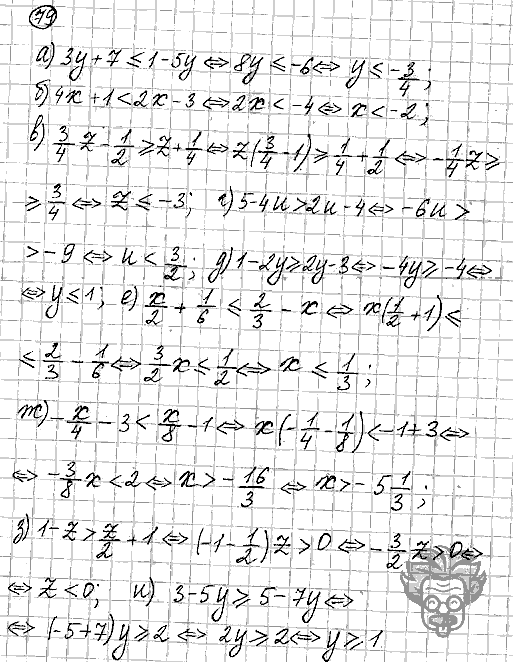 79
а) 3y + 7 ≤ 1 - 5y ⇔ 8y ≤ -6 ⇔ y ≤ -3/4;
б) 4x + 1 < 2x - 3 ⇔ 2x < -4 ⇔ x < -2;
в) 3/4 z - 1/2 ≥ z + 1/4 ⇔ z(3/4 - 1) ≥ 1/4 + 1/2 ⇔ -1/4 z ≥
≥ 3/4 ⇔ z ≤ -3; г) 5 - 4u > 2u - 4 ⇔ -6u >
> -9 ⇔ u < 3/2; д) 1 - 2y ≥ 2y - 3 ⇔ -4y ≥ -4 ⇔
⇔ y ≤ 1; е) x/2 + 1/6 ≤ 2/3 - x ⇔ x(1/2 + 1) ≤
≤ 2/3 - 1/6 ⇔ 3/2 x ≤ 1/2 ⇔ x ≤ 1/3;
ж) -x/4 - 3 < x/8 - 1 ⇔ x(-1/4 - 1/8) < -1 + 3 ⇔
⇔ -3/8 x < 2 ⇔ x > -16/3 ⇔ x > -5 1/3;
з) 1 - z > z/2 + 1 ⇔ (-1 - 1/2) z > 0 ⇔ -3/2 z > 0 ⇔
⇔ z < 0; и) 3 - 5y ≥ 5 - 7y ⇔
⇔ (-5 + 7) y ≥ 2 ⇔ 2y ≥ 2 ⇔ y ≥ 1